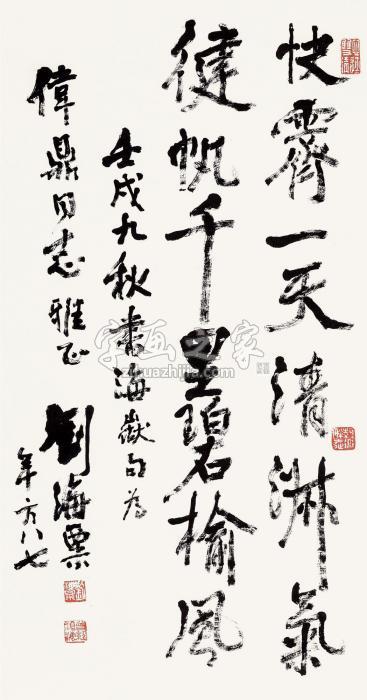 快霽一天清淑氣
健帆千里碧榆風
壬戌九秋書海嶽句為
偉鼎同志雅正
劉海粟
年方八七
字画之家